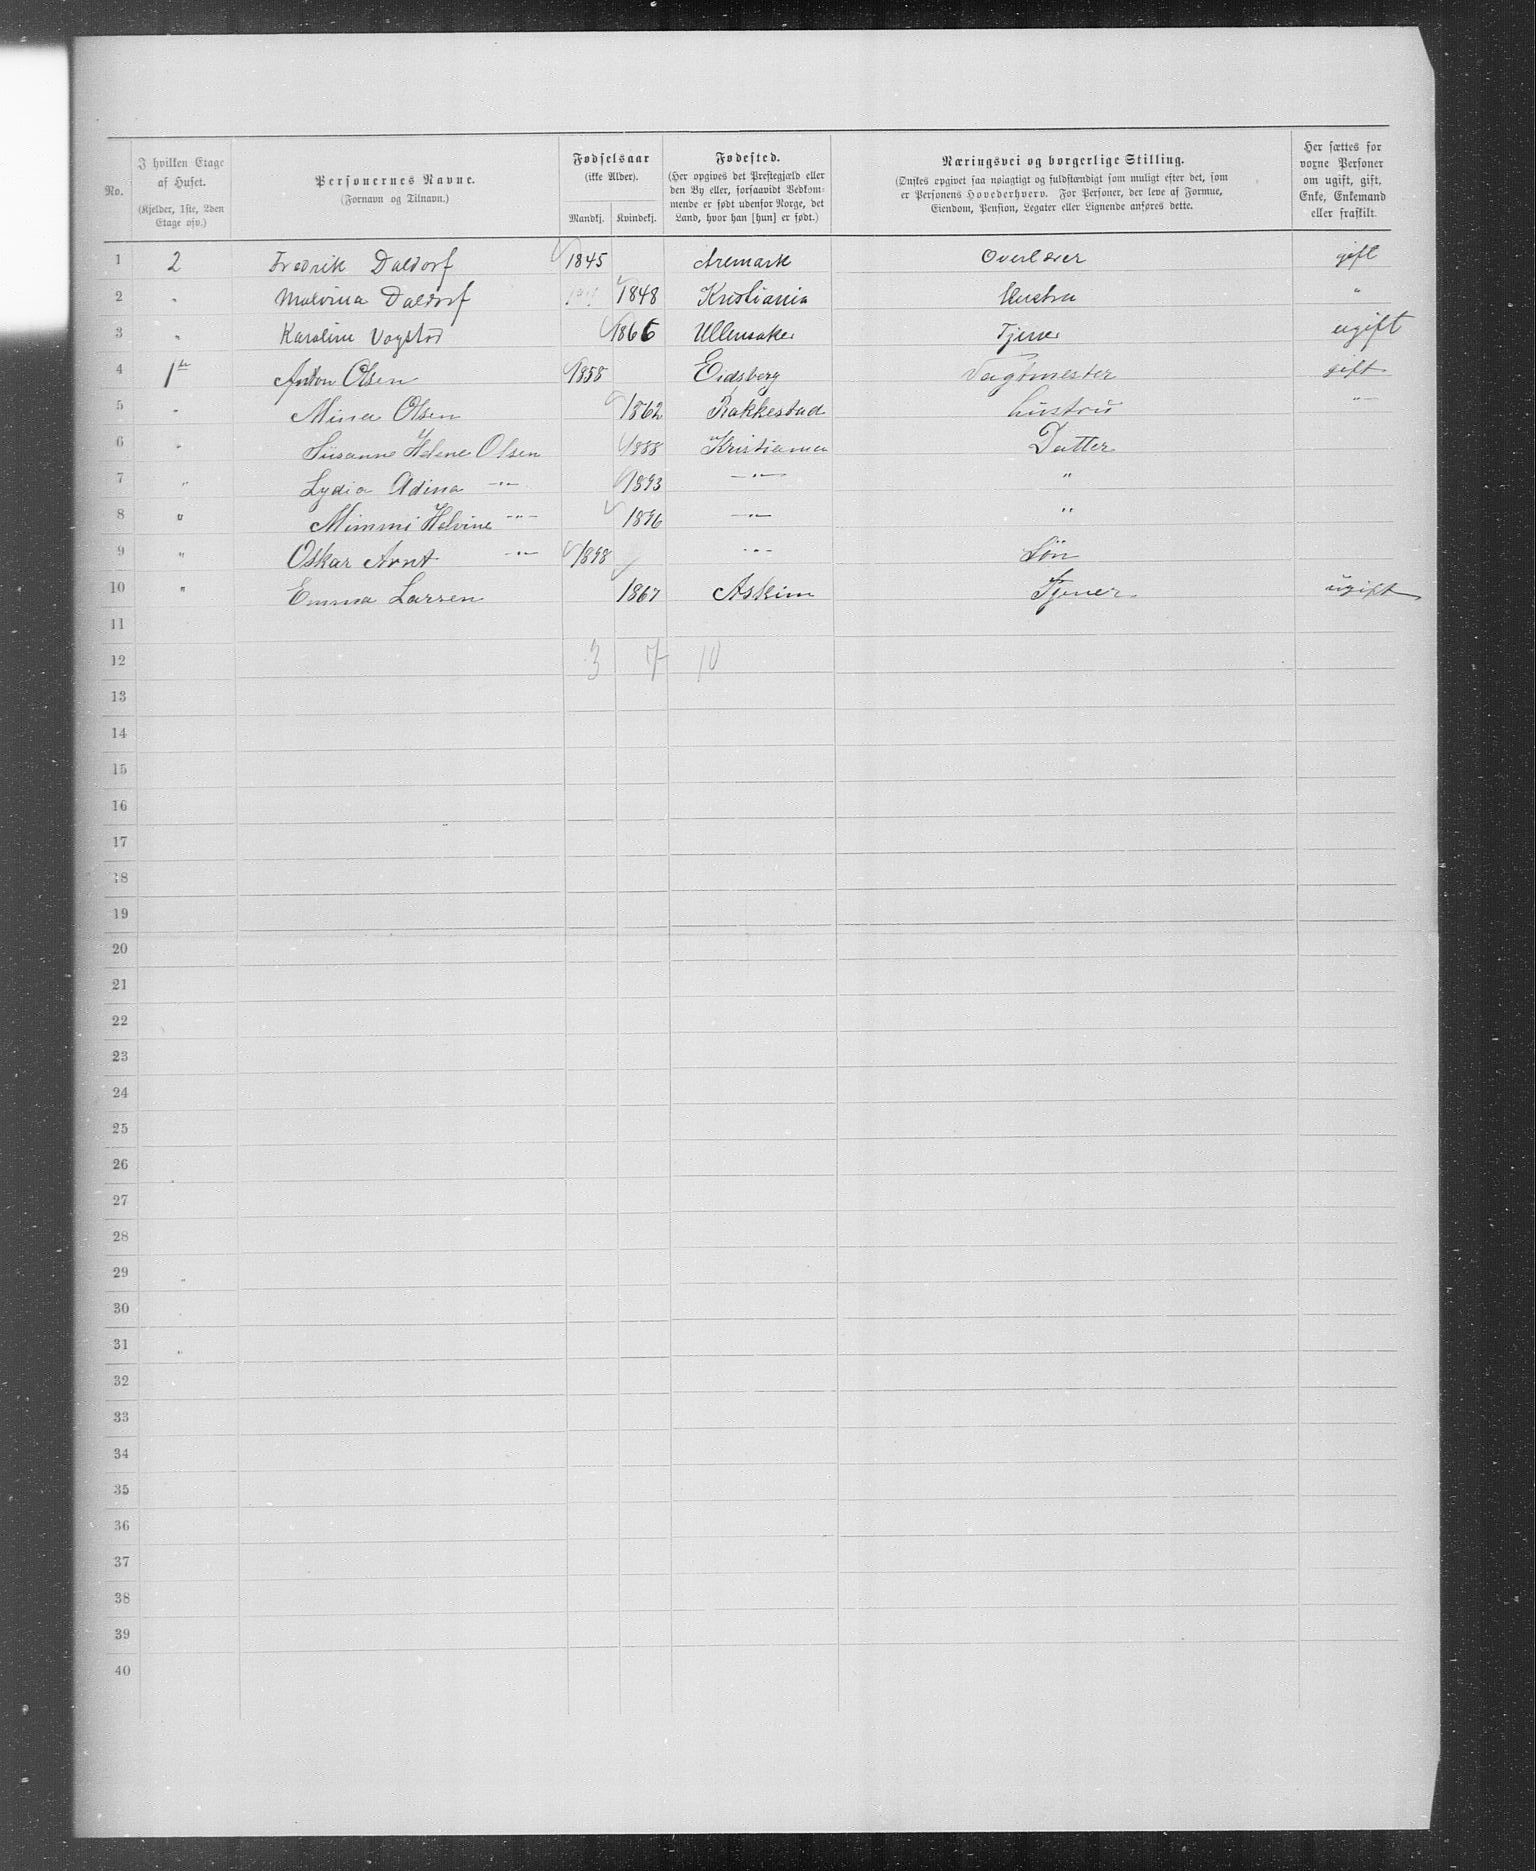 No.
I hvilken Etage af Huset.
(Kjelder, 1ste, 2den Etage osv.)
Personernes Navne.
(Fornavn og Tilnavn.)
Fødselsaar
(ikke Alder).
Mandkj. Kvindekj.
Fødested.
(Her opgives det Prestegjæld eller den By eller, forsaavidt Vedkommende er født udenfor Norge, det Land, hvor han [hun] er født.)
Næringsvei og borgerlige Stilling.
(Ønskes opgivet saa nøiagtigt og fuldstændigt som muligt efter det, som er Personens Hovederhverv. For Personer, der leve af Formue, Eiendom, Pension, Legater eller Lignende anføres dette.
Her sættes for voxne Personer om ugift, gift, Enke, Enkemand eller fraskilt.
1 2 Fredrik Daldorf 1845 Aremark Overlærer gift
2 " Malvina Daldorf 1848 Kristiania Hustru "
3 " Karoline Vogstad 1866 Ullensaker Tjener ugift
4 1ste Anton Olsen 1858 Eidsberg Vagtmester gift
5 " Mina Olsen 1862 Rakkestad hustru "
6 " Susanne Helene Olsen 1888 Kristiania Datter
7 " Lydia Adina -"- 1893 -"- "
8 " Mimmi Helvine -"- 1896 -"- "
9 " Oskar Arnt -"- 1898 -"- Søn
10 " Emma Larsen 1867 Askim Tjener ugift
11
12 3 7 10
13
14
15
16
17
18
19
20
21
22
23
24
25
26
27
28
29
30
31
32
33
34
35
36
37
38
39
40